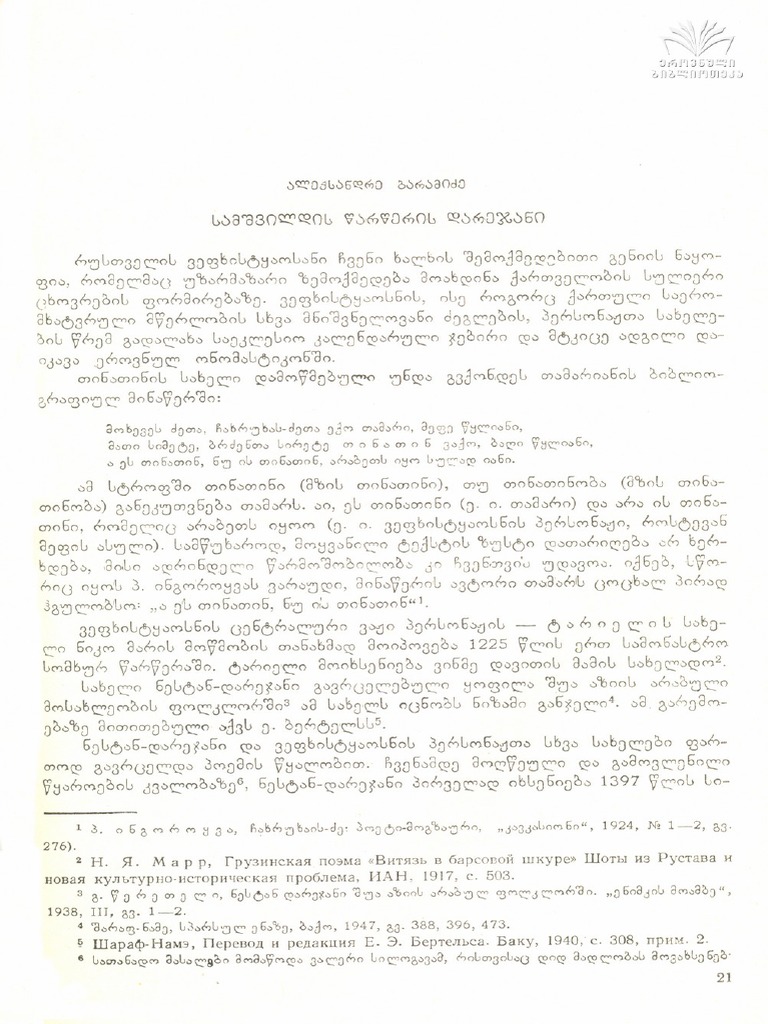 ეროვნული
ბიბლიოთეკა
ალექსანდრე ბარამიძე
სამშვილდის წარწერის დარეჯანი
რუსთველის ვეფხისტყაოსანი ჩვენი ხალხის შემოქმედებითი გენიის ნაყო-
ფია, რომელმაც უზარმაზარი ზემოქმედება მოახდინა ქართველობის სულიერი
ცხოვრების ფორმირებაზე. ვეფხისტყაოსნის, ისე როგორც ქართული საერო-
მხატვრული მწერლობის სხვა მნიშვნელოვანი ძეგლების, პერსონაჟთა სახელე-
ბის წრემ გადალახა საეკლესიო კალენდარული ჯებირი და მტკიცე ადგილი და-
იკავა ეროვნულ ონომასტიკონში.
თინათინის სახელი დამოწმებული უნდა გვქონდეს თამარიანის ბიბლიო-
გრაფიულ მინაწერში:
მოხევეს ძეთა, ჩახრუხას-ძეთა ექო თამარი, მეფე წყლიანი,
მათი სიმეტე, ბრძენთა სირეტე თინათინ ვაქო, ბაღი წყლიანი,
ა ეს თინათინ, ნუ ის თინათინ, არაბეთს იყო სულად იანი.
ამ სტროფში თინათინი (მზის თინათინი), თუ თინათინობა (მზის თინა-
თინობა) განეკუთვნება თამარს. აი, ეს თინათინი (ე. ი. თამარი) და არა ის თინა-
თინი, რომელიც არაბეთს იყოო (ე. ი. ვეფხისტყაოსნის პერსონაჟი, როსტევან
მეფის ასული). სამწუხაროდ, მოყვანილი ტექსტის ზუსტი დათარიღება არ ხერ-
ხდება, მისი ადრინდელი წარმოშობილობა კი ჩვენთვის უდავოა. იქნებ, სწო-
რიც იყოს პ. ინგოროყვას ვარაუდი, მინაწერის ავტორი თამარს ცოცხალ პირად
ჰგულობსო: „ა ეს თინათინ, ნუ ის თინათინ“¹.
ვეფხისტყაოსნის ცენტრალური ვაჟი პერსონაჟის — ტარიელის სახე-
ლი ნიკო მარის მოწმობის თანახმად მოიპოვება 1225 წლის ერთ სამონასტრო
სომხურ წარწერაში. ტარიელი მოიხსენიება ვინმე დავითის მამის სახელადო².
სახელი ნესტან-დარეჯანი გავრცელებული ყოფილა შუა აზიის არაბული
მოსახლეობის ფოლკლორში³ ამ სახელს იცნობს ნიზამი განჯელი⁴. ამ გარემო-
ებაზე მითითებული აქვს ე. ბერტელსს⁵.
ნესტან-დარეჯანი და ვეფხისტყაოსნის პერსონაჟთა სხვა სახელები ფარ-
თოდ გავრცელდა პოემის წყალობით. ჩვენამდე მოღწეული და გამოვლენილი
წყაროების კვალობაზე⁶, ნესტან-დარეჯანი პირველად იხსენიება 1397 წლის სი-
¹ პ. ინგოროყვა, ჩახრუხაის-ძე: პოეტი-მოგზაური, „კავკასიონი“, 1924, № 1—2, გვ.
276).
² Н. Я. Марр, Грузинская поэма «Витязь в барсовой шкуре» Шоты из Рустава и
новая культурно-историческая проблема, ИАН, 1917, с. 503.
³ გ. წერეთელი, ნესტან დარეჯანი შუა აზიის არაბულ ფოლკლორში. „ენიმკის მოამბე“,
1938, III, გვ. 1—2.
⁴ შარაფ-ნამე, სპარსულ ენაზე, ბაქო, 1947, გვ. 388, 396, 473.
⁵ Шараф-Намэ, Перевод и редакция Е. Э. Бертельса. Баку, 1940, с. 308, прим. 2.
⁶ სათანადო მასალები მომაწოდა ვალერი სილოგავამ, რისთვისაც დიდ მადლობას მოვახსენებ-
21